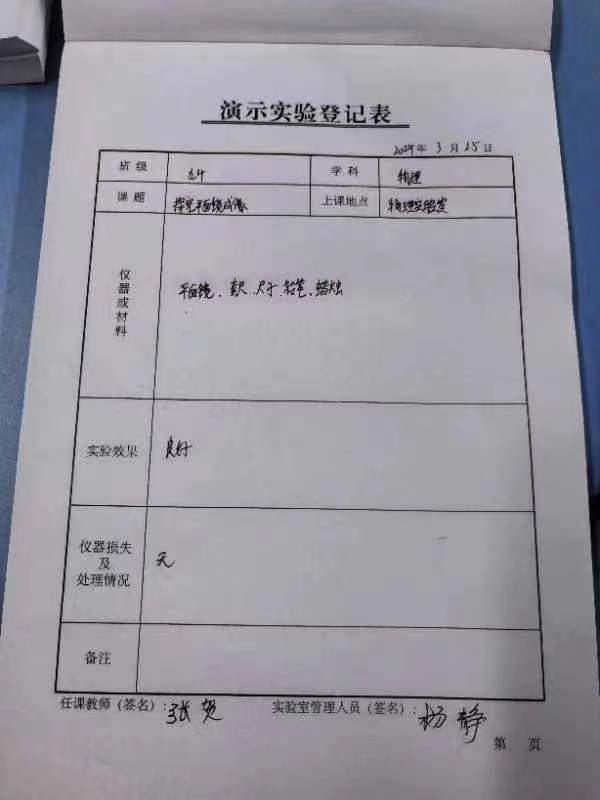 演示实验登记表
2024年 3月25日
班级 学科 物理
课题 探究平面镜成像 上课地点 物理实验室
仪器或材料 平面镜、尺子、铅笔、蜡烛
实验效果 良好
仪器损失及处理情况 无
备注
任课教师（签名）：张贺 实验室管理人员（签名）：杨静
第 页